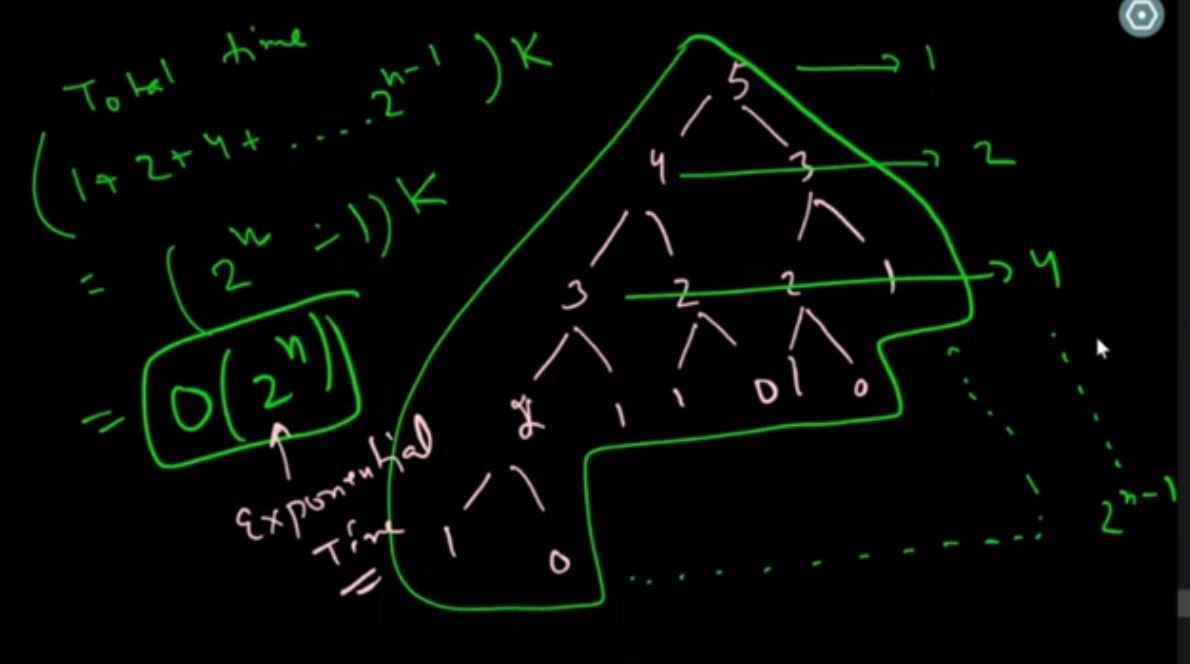 Total time
(1+2+4+.....2^{n-1})K
= (2^n - 1)K
= O(2^n)
Exponential
Time
5 → 1
4 3 → 2
3 2 2 1 → 4
2 1 1 0 1 0
1 0
2^{n-1}